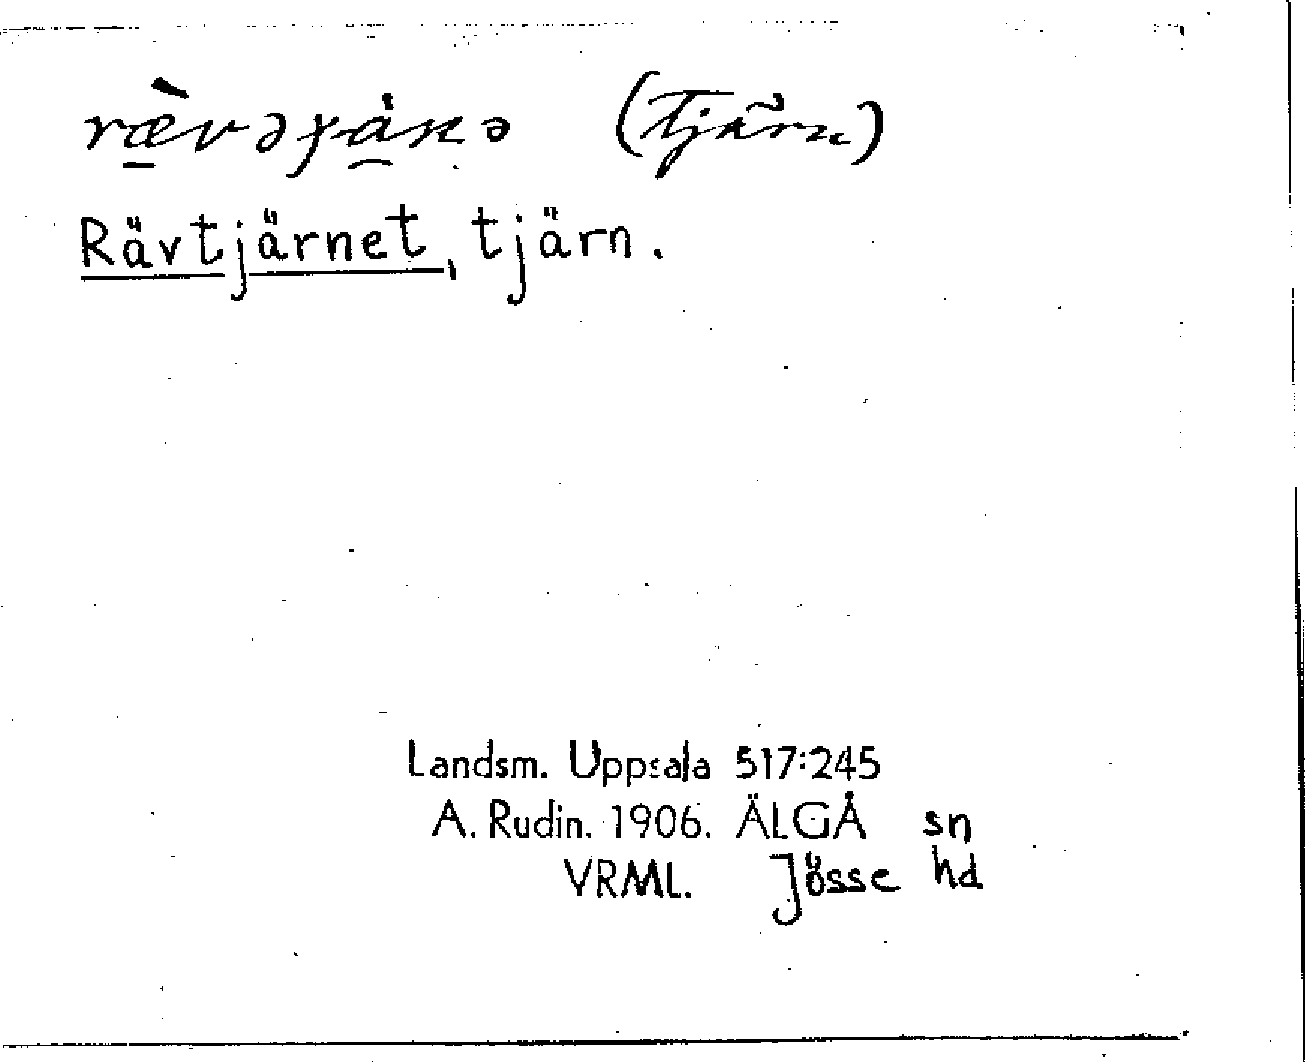 (Tjärn)
Rävtjärnet, tjärn.
Landsm. Uppsala 517:245
A. Rudin. 1906. ÄLGÅ sn
VRML. Jösse hd